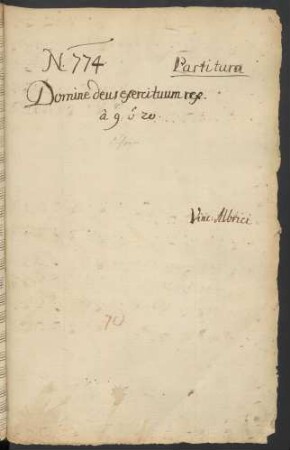 N. 774 Partitura
Domine deus exercituum rex.
à 9 ô 20
Vinc. Albrici
70